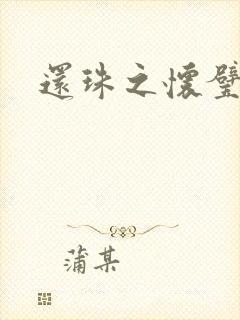 還珠之懷璧
蒲某